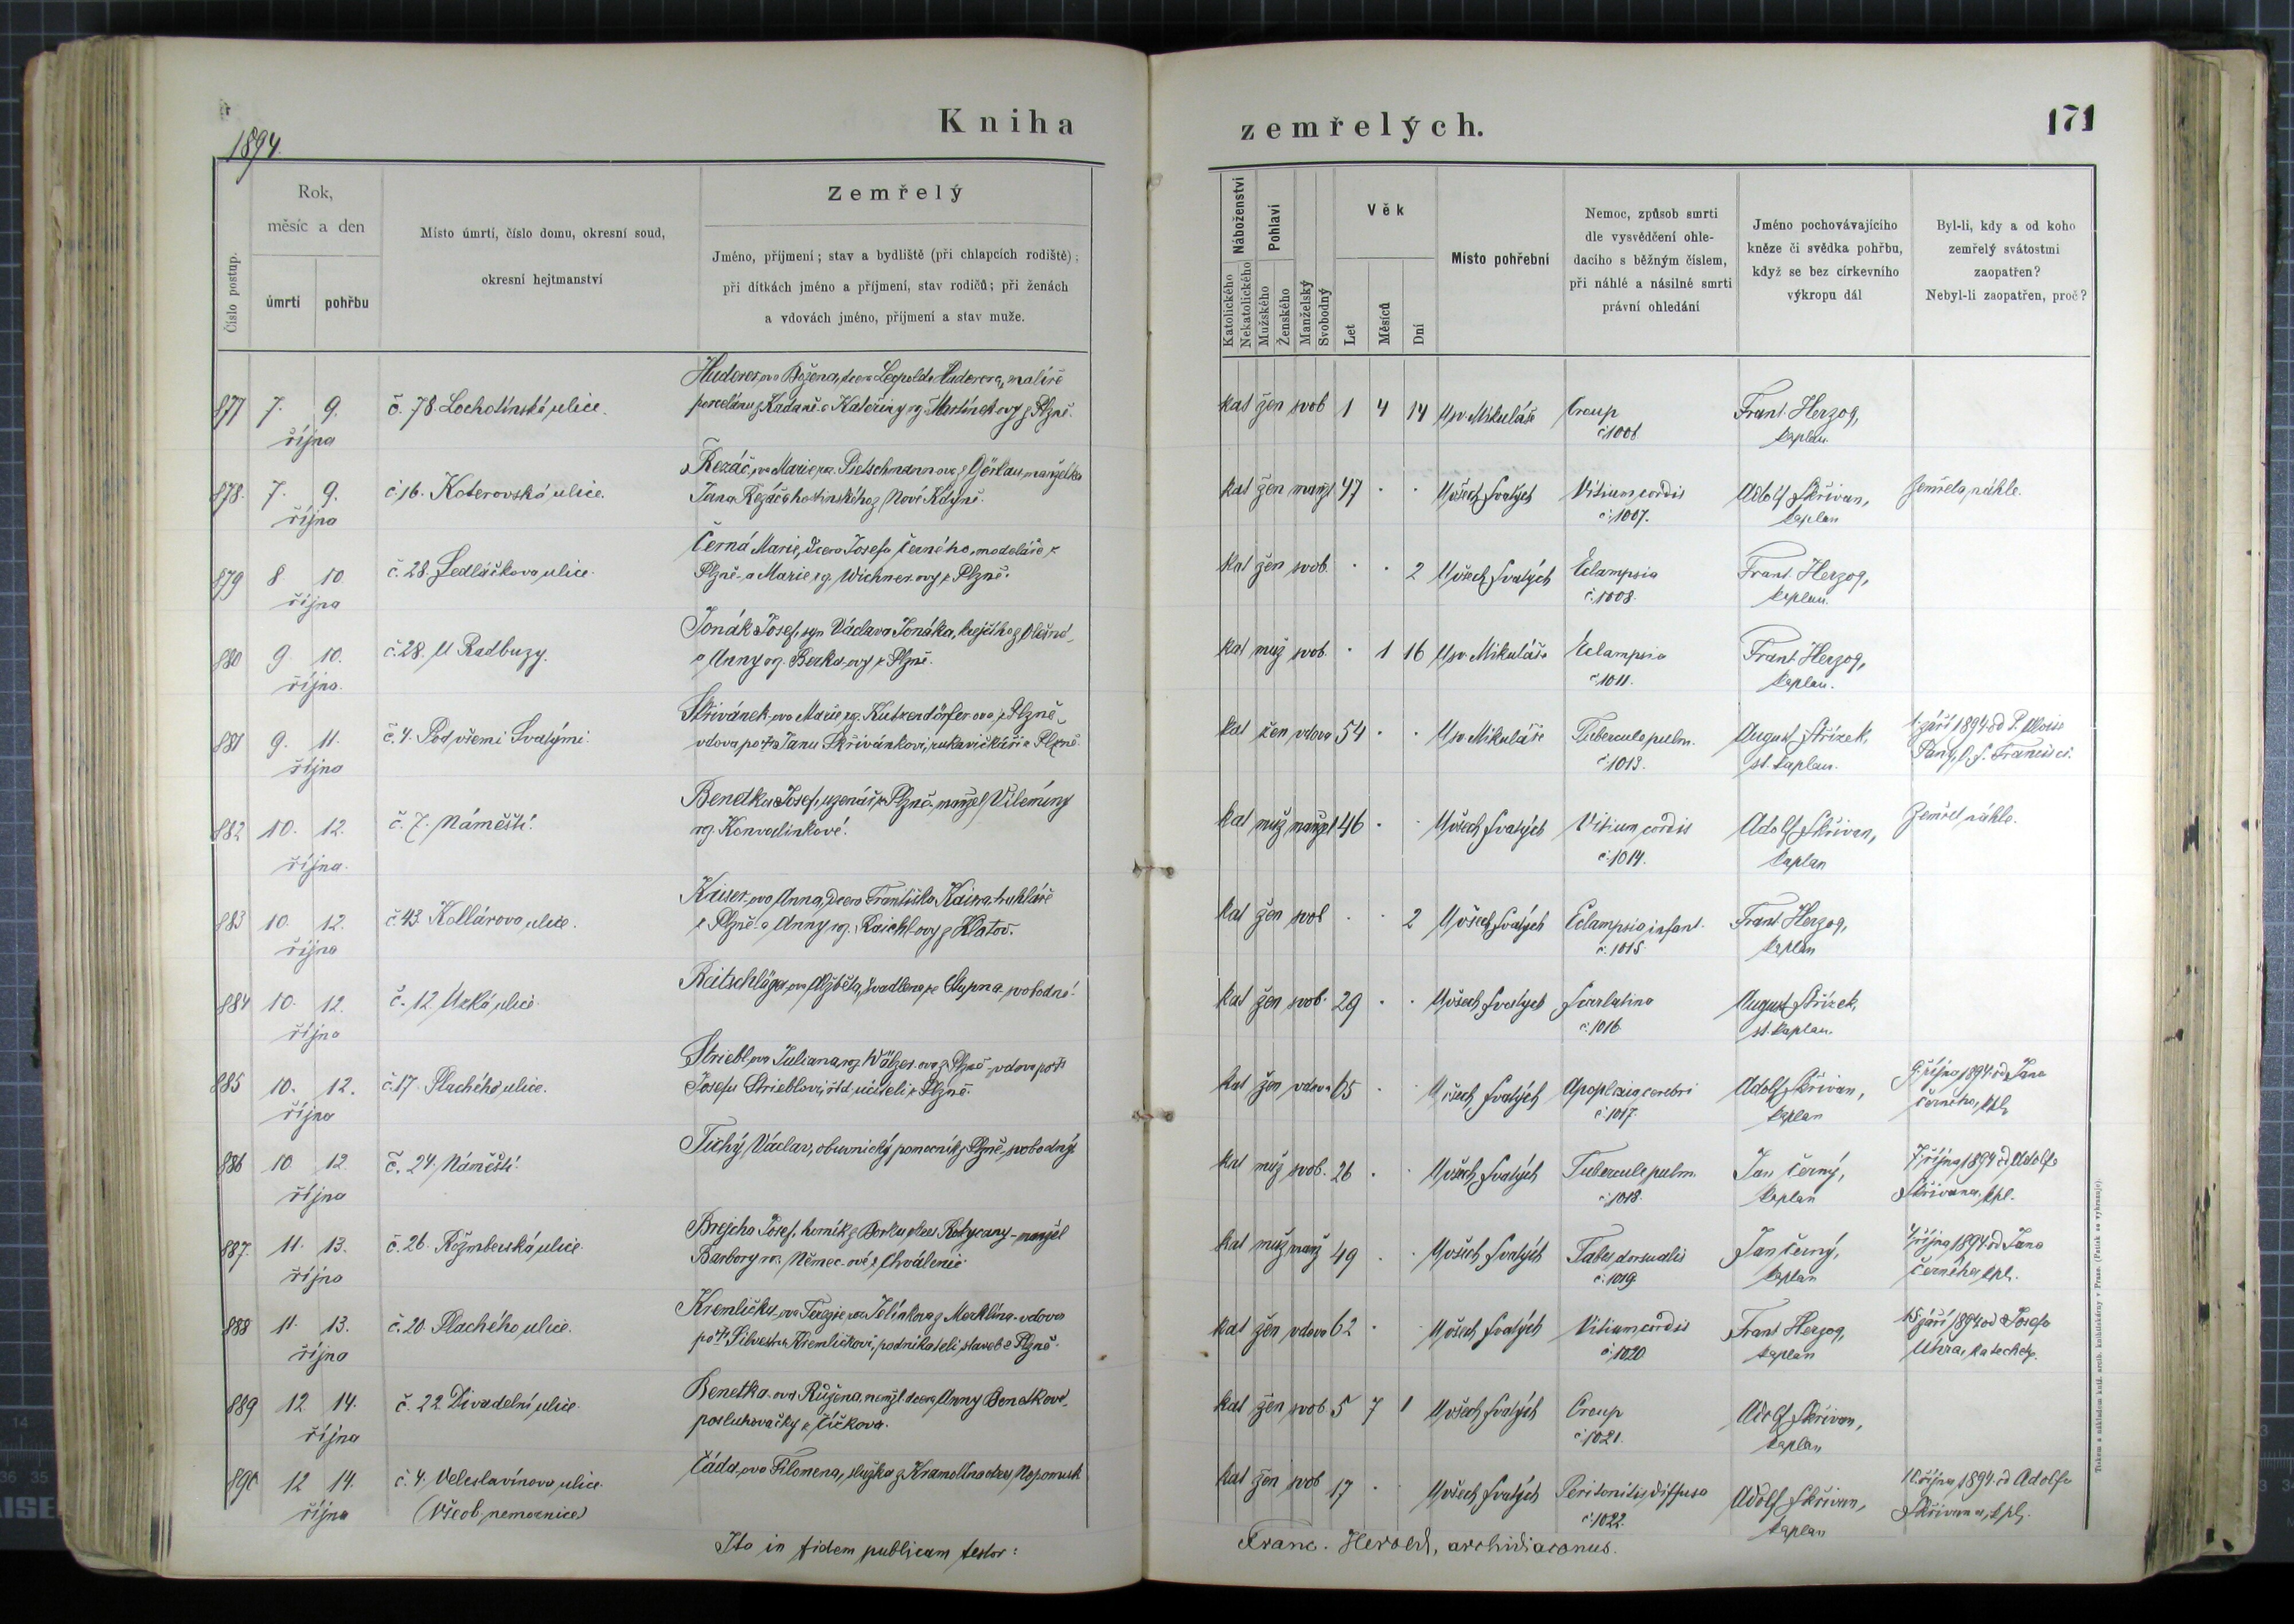 Kniha zemřelých.
171
1894.
Číslo postup.
Rok, měsíc a den
úmrtí
pohřbu
Místo úmrtí, číslo domu, okresní soud,
okresní hejtmanství
Zemřelý
Jméno, příjmení; stav a bydliště (při chlapcích rodiště);
při dítkách jméno a příjmení, stav rodičů; při ženách
a vdovách jméno, příjmení a stav muže.
Náboženství
Katolického
Nekatolického
Pohlaví
Mužského
Ženského
Manželský
Svobodný
Věk
Let
Měsíců
Dní
Místo pohřební
Nemoc, způsob smrti
dle vysvědčení ohle-
dacího s běžným číslem,
při náhlé a násilné smrti
právní ohledání
Jméno pochovávajícího
kněze či svědka pohřbu,
když se bez církevního
výkropu dál
Byl-li, kdy a od koho
zemřelý svátostmi
zaopatřen?
Nebyl-li zaopatřen, proč?
877 7. 9. října č. 78. Lochotínská ulice.
Huderer-ova Božena, dcera Leopolda Huderera, malíře
porcelánu z Kadaně a Kateřiny roz. Martínek-ovy z Plzně.
kat žen svob 1 4 14 U sv. Mikuláše Croup č. 1006 Frant. Herzog, kaplan.
878. 7. 9. října č. 16. Koterovská ulice.
Řezáč-ova Marie roz. Pietschmann-ova z manželka
Jana Řezáče hostinského z Nové Kdyně.
kat žen manž 47 U všech Svatých Vitium cordis č. 1007. Adolf Skřivan, kaplan Zemřela náhle.
879 8 10 října č. 28. Sedláčkova ulice.
Černá Marie, dcera Josefa Černého, modeláře z
Plzně a Marie roz. Wichner-ovy z Plzně.
kat žen svob. 2 U všech Svatých Eclampsia č. 1008. Frant. Herzog, kaplan.
880 9. 10. října. č. 28. U Radbuzy.
Jonák Josef, syn Václava Jonáka, krejčího z
a Anny roz. Berka-ovy z Plzně.
kat muž svob. 1 16 U sv. Mikuláše Eclampsia č. 1011. Frant Herzog, kaplan.
881 9. 11. října č. 4. Pod všemi Svatými.
Skřivánek-ova Marie roz. Kutzendörfer-ova z Plzně,
vdova po † Janu Skřivánkovi, rukavičkáři z Plzně.
kat žen vdova 54 U sv. Mikuláše Tubercul. pulm. č. 1013. August Střízek, st. kaplan. 1. září 1894 od P. Aloise
O. S. Francisci.
882 10. 12. října. č. 7. Náměstí.
Benetka Josef, uzenář z Plzně, manžel Vilemíny
roz. Konvalinkové.
kat muž manžel 46 U všech Svatých Vitium cordis č. 1014. Adolf Skřivan, kaplan Zemřel náhle.
883 10. 12. října č. 43 Kollárova ulice.
Kaiser-ova Anna, dcera Františka Kaisra, truhláře
z Plzně a Anny roz. Raichl-ovy z Klatov.
kat žen svob 2 U všech Svatých Eclampsia infant. č. 1015. Frant Herzog, kaplan
884 10. 12. října č. 12. Úzká ulice.
Raitschläger-ova Alžběta, švadlena ze Stupna svobodná.
kat žen svob. 29 U všech Svatých Scarlatina č. 1016 August Střízek, st. kaplan.
885 10. 12. října č. 17. Plachého ulice.
Striebl-ova Juliana roz. Wälzer-ova z Plzně - vdova po †
Josefu Strieblovi, učiteli z Plzně.
kat žen vdova 65 U všech Svatých Apoplexia cerebri č. 1017. Adolf Skřivan, kaplan 9. října 1894 od Jana
Černého, kpl.
886 10 12 října č. 24. Náměstí.
Tichý Václav, obuvnický pomocník z Plzně - svobodný.
kat muž svob. 26 U všech Svatých Tubercul. pulm. č. 1018. Jan Černý, kaplan 7. října 1894 od Adolfa
Skřivana, kpl.
887. 11. 13. října č. 26. Rožmberská ulice.
Brejcha Josef, horník z Borku okres Rokycany - manžel
Barbory roz. Němec-ové z Chválenic.
kat muž manž 49 U všech Svatých Tabes dorsualis č. 1019 Jan Černý, kaplan 4. října 1894 od Jana
Černého kpl.
888 11. 13. října č. 20. Plachého ulice.
Kremličky-ova Terezie roz. Jelínkova z Merklína - vdova
po † Silvestru Kremličkovi, podnikateli staveb z Plzně.
kat žen vdova 62 U všech Svatých Vitium cordis č. 1020 Frant Herzog, kaplan 15. září 1894 od Josefa
Uhra, katechety.
889 12 14. října č. 22 Divadelní ulice.
Benetka-ova Růžena, nemžl. dcera Anny Benetkové,
posluhovačky z Číčkova.
kat žen svob 5 7 1 U všech Svatých Croup č. 1021. Adolf Skřivan, kaplan
890 12 14. října č. 4. Veleslavínova ulice.
(Všeob. nemocnice)
Čáda-ova Filomena, služka z Kramolína okres Nepomuk
kat žen svob 17 U všech Svatých Peritonitis diffusa č. 1022. Adolf Skřivan, kaplan 11. října 1894 od Adolfa
Skřivana, kpl.
Ita in fidem publicam testor:
Franc. Herold, archidiaconus.